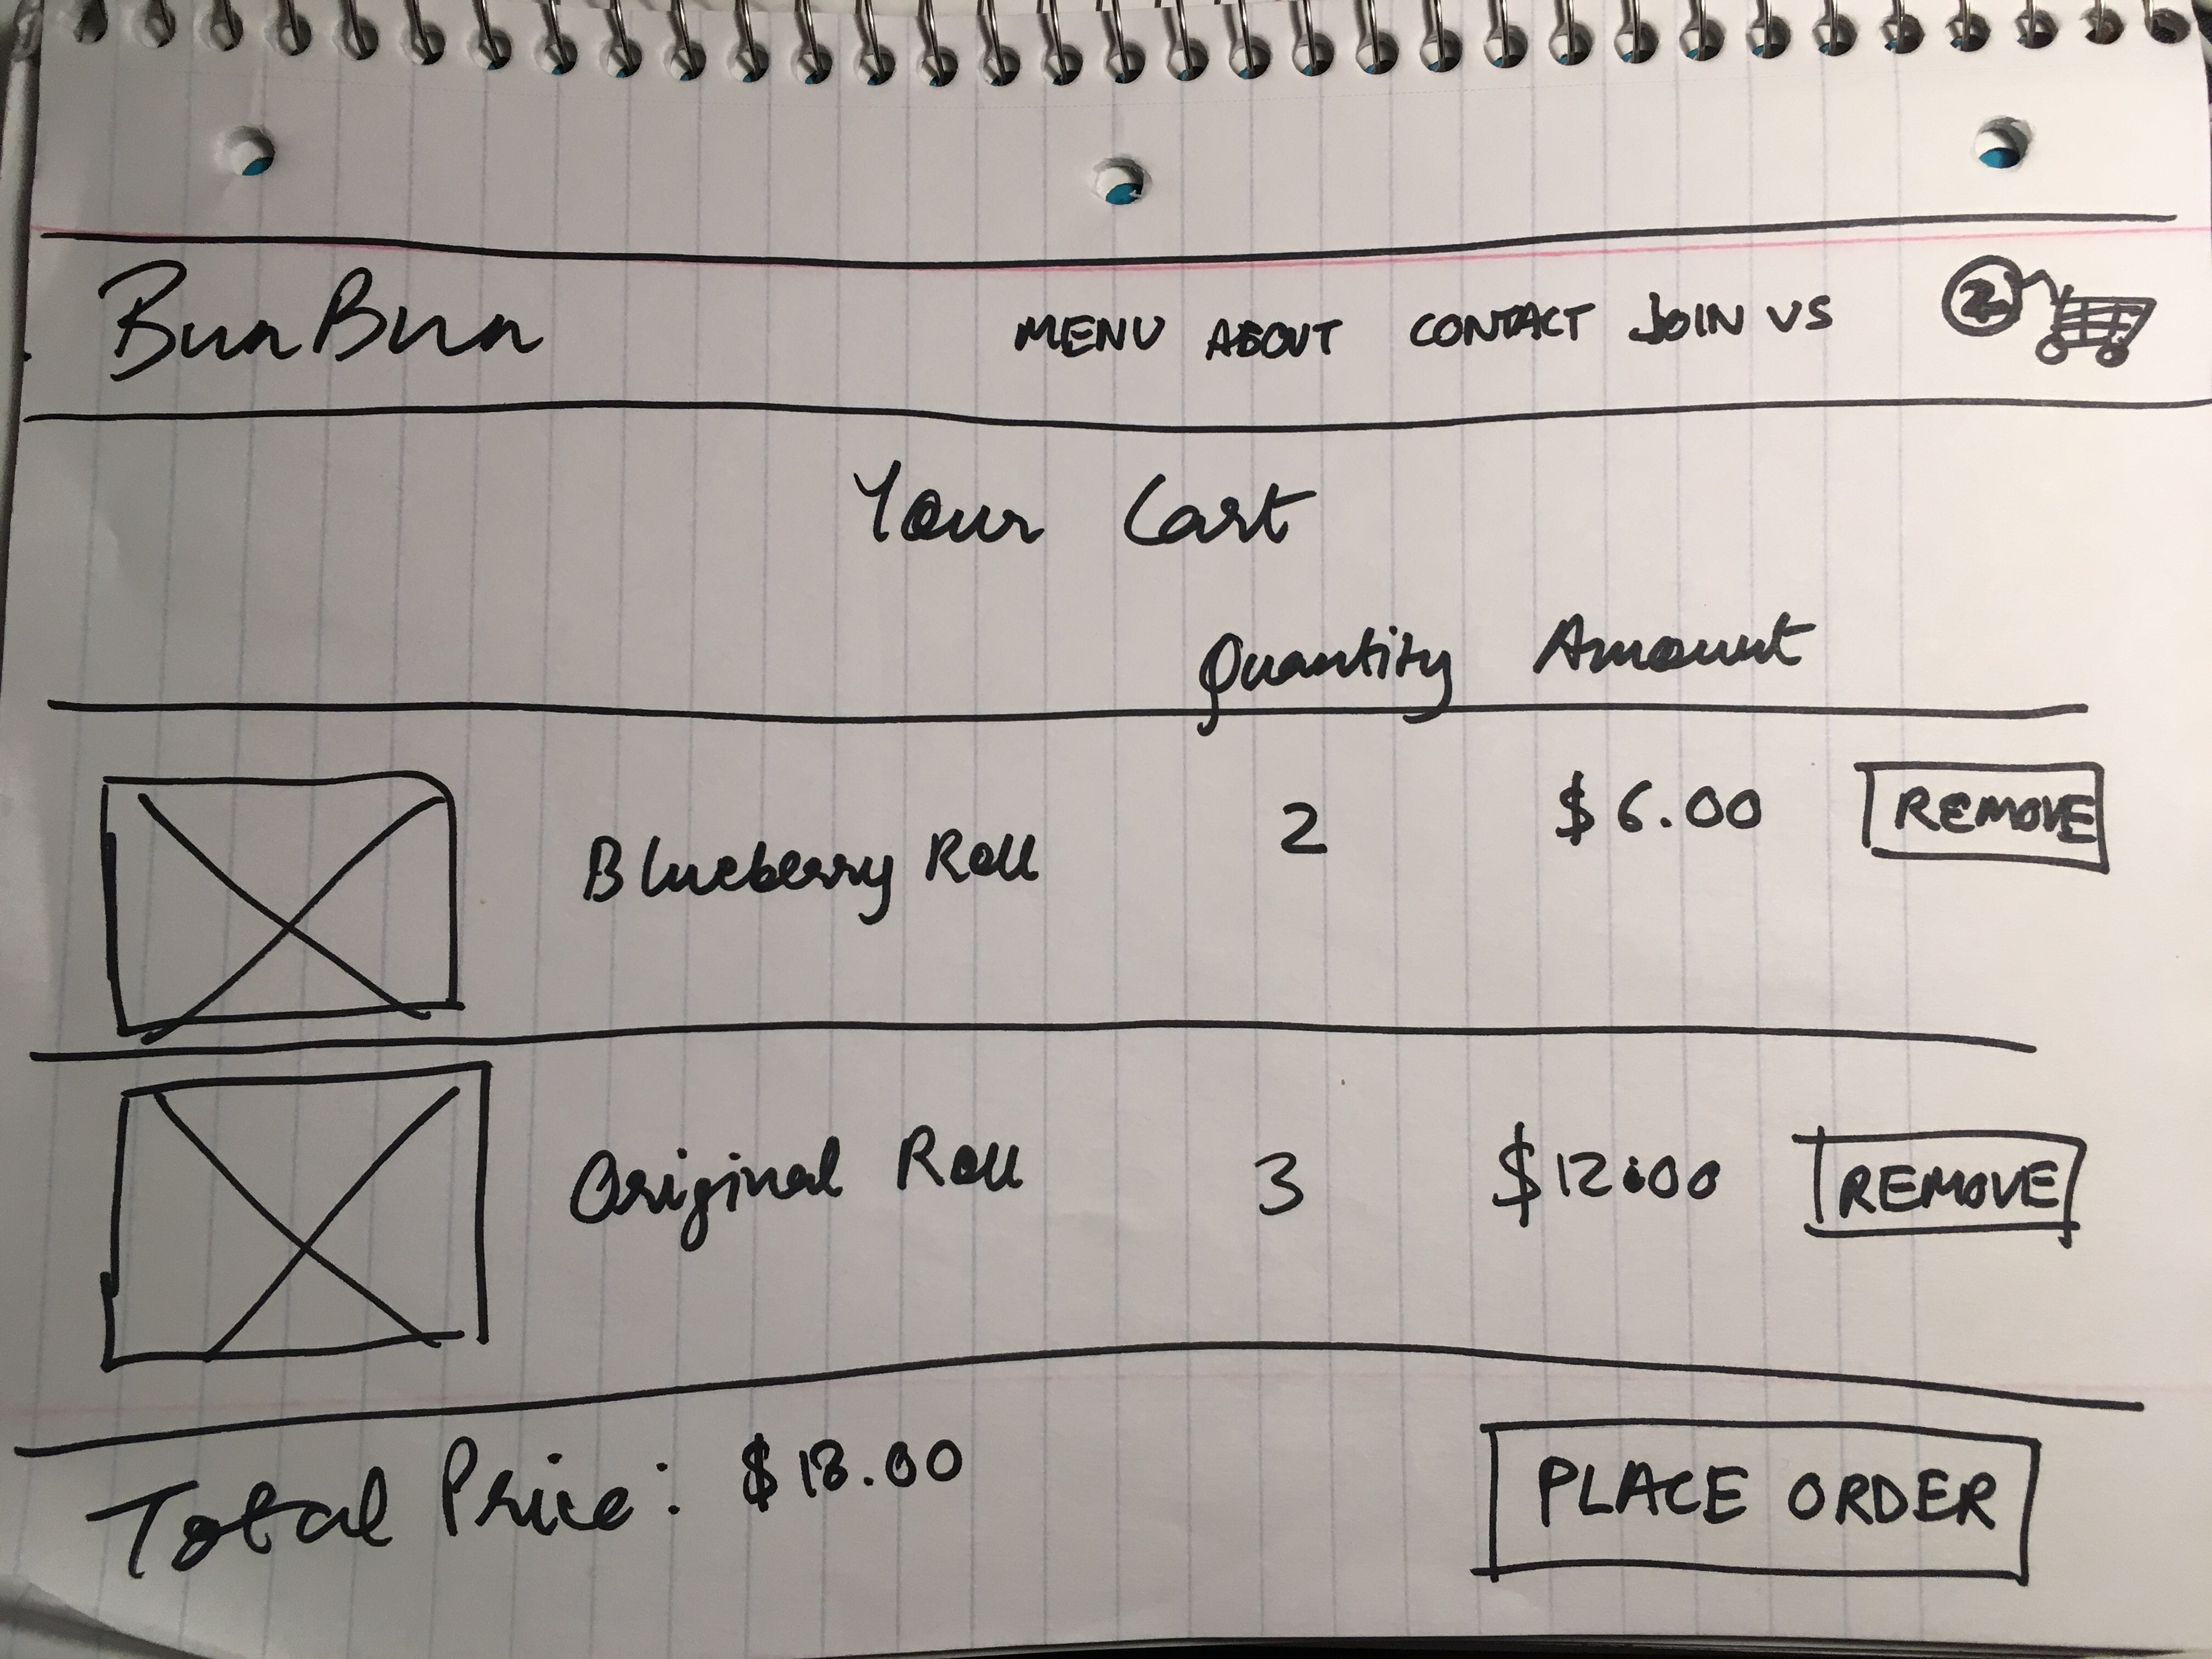 BunBun MENU ABOUT CONTACT JOIN US 2
Your Cart
Quantity Amount
Blueberry Roll 2 $6.00 REMOVE
Original Roll 3 $12.00 REMOVE
Total Price: $18.00 PLACE ORDER